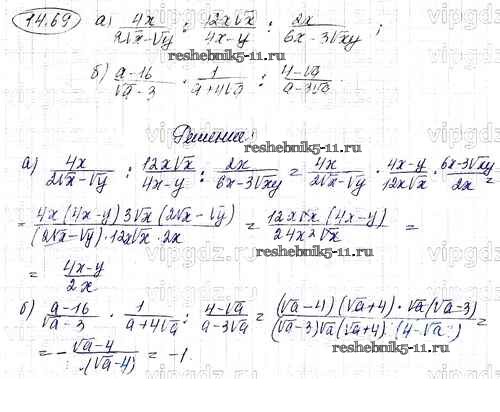 14.69 а) 4x/(2√x-√y) : 12x√x/(4x-y) : 2x/(6x-3√xy) ;
б) (a-16)/(√a-3) · 1/(a+4√a) : (4-√a)/(a-3√a)
reshebnik5-11.ru
Решение:
reshebnik5-11.ru
а) 4x/(2√x-√y) : 12x√x/(4x-y) : 2x/(6x-3√xy) = 4x/(2√x-√y) · (4x-y)/(12x√x) · (6x-3√xy)/(2x) =
= (4x(4x-y)3√x(2√x-√y))/((2√x-√y)·12x√x·2x) = (12x√x(4x-y))/(24x²√x) =
= (4x-y)/(2x)
б) (a-16)/(√a-3) · 1/(a+4√a) : (4-√a)/(a-3√a) = ((√a-4)(√a+4)·√a(√a-3))/((√a-3)√a(√a+4)(4-√a)) =
= -(√a-4)/(√a-4) = -1.
reshebnik5-11.ru
vipgdz.ru